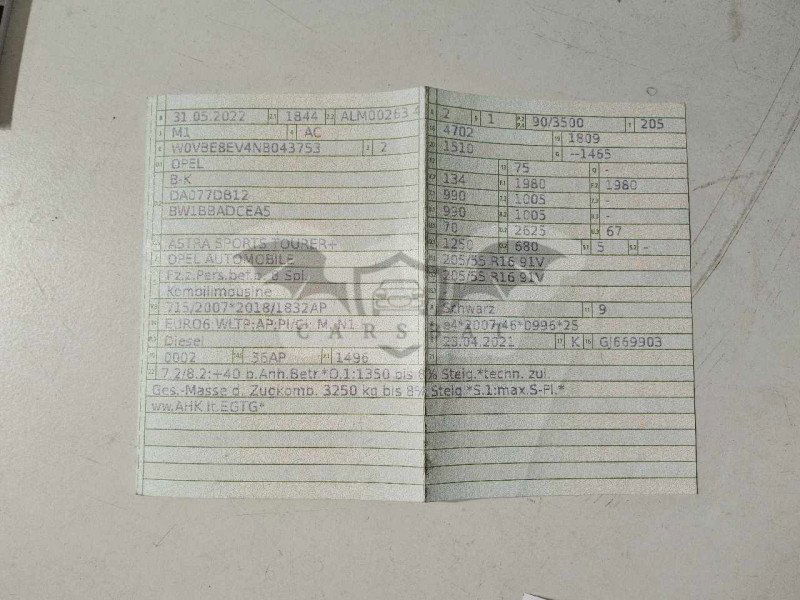 31.05.2022 1844 ALM00263 4
M1 AC
W0VBE8EV4NB043753 2
OPEL
B-K
DA077DB12
BW1BBADCEA5
ASTRA SPORTS TOURER+
OPEL AUTOMOBILE
Fz.z.Pers.bef.b. 8 Spl.
Kombilimousine
715/2007*2018/1832AP
EURO6;WLTP;AP;PI/CI; M, N1
Diesel
0002 36AP 1496
2 1 90/3500 205
4702 1809
1510 --1465
75 -
134 1980 1980
990 1005 -
990 1005 -
70 2625 67
1250 680 5 -
205/55 R16 91V
205/55 R16 91V
Schwarz 9
e4*2007/46*0996*25
23.04.2021 K GJ669903
7.2/8.2:+40 b.Anh.Betr*O.1:1350 bis 8% Steig.*techn. zul.
Ges.-Masse d. Zugkomb. 3250 kg bis 8% Steig.*S.1:max.S-Pl.*
ww.AHK lt.EGTG*
CARS